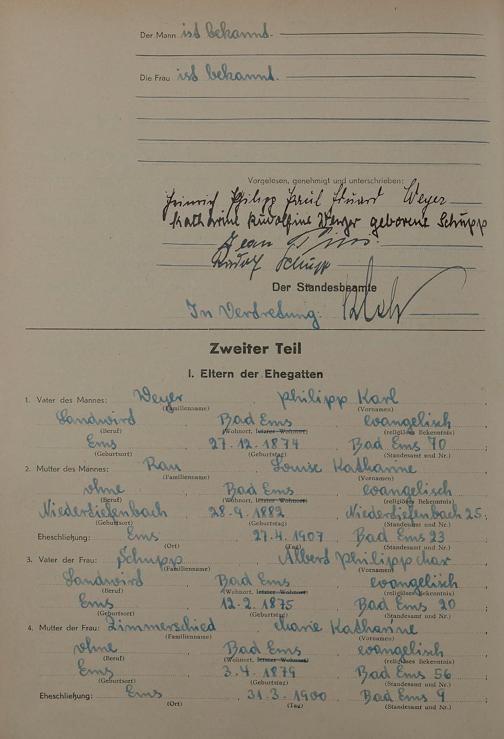 Der Mann ist bekannt.
Die Frau ist bekannt.
Vorgelesen, genehmigt und unterschrieben:
Heinrich Philipp Paul Eduard Weyer
Katharine Rudolfine Weyer geborene Schupp
Jean
Rudolf Schupp
Der Standesbeamte
In Vertretung:
Zweiter Teil
I. Eltern der Ehegatten
1. Vater des Mannes: Weyer Philipp Karl
(Familienname) (Vornamen)
Landwird Bad Ems evangelisch
(Beruf) (Wohnort, letzter Wohnort) (religiöses Bekenntnis)
Ems 27.12.1874 Bad Ems 70
(Geburtsort) (Geburtstag) (Standesamt und Nr.)
2. Mutter des Mannes: Rau Louise Katharine
(Familienname) (Vornamen)
ohne Bad Ems evangelisch
(Beruf) (Wohnort, letzter Wohnort) (religiöses Bekenntnis)
Niedertiefenbach 28.9.1882 Niedertiefenbach 25.
(Geburtsort) (Geburtstag) (Standesamt und Nr.)
Eheschließung: Ems 27.4.1907 Bad Ems 23
(Ort) (Tag) (Standesamt und Nr.)
3. Vater der Frau: Schupp Albert Philipp
(Familienname) (Vornamen)
Landwird Bad Ems evangelisch
(Beruf) (Wohnort, letzter Wohnort) (religiöses Bekenntnis)
Ems 12.2.1875 Bad Ems 20
(Geburtsort) (Geburtstag) (Standesamt und Nr.)
4. Mutter der Frau: Zimmerschied Katharine
(Familienname) (Vornamen)
ohne Bad Ems evangelisch
(Beruf) (Wohnort, letzter Wohnort) (religiöses Bekenntnis)
Ems 3.4.1879 Bad Ems 56
(Geburtsort) (Geburtstag) (Standesamt und Nr.)
Eheschließung: Ems 31.3.1900 Bad Ems 9
(Ort) (Tag) (Standesamt und Nr.)